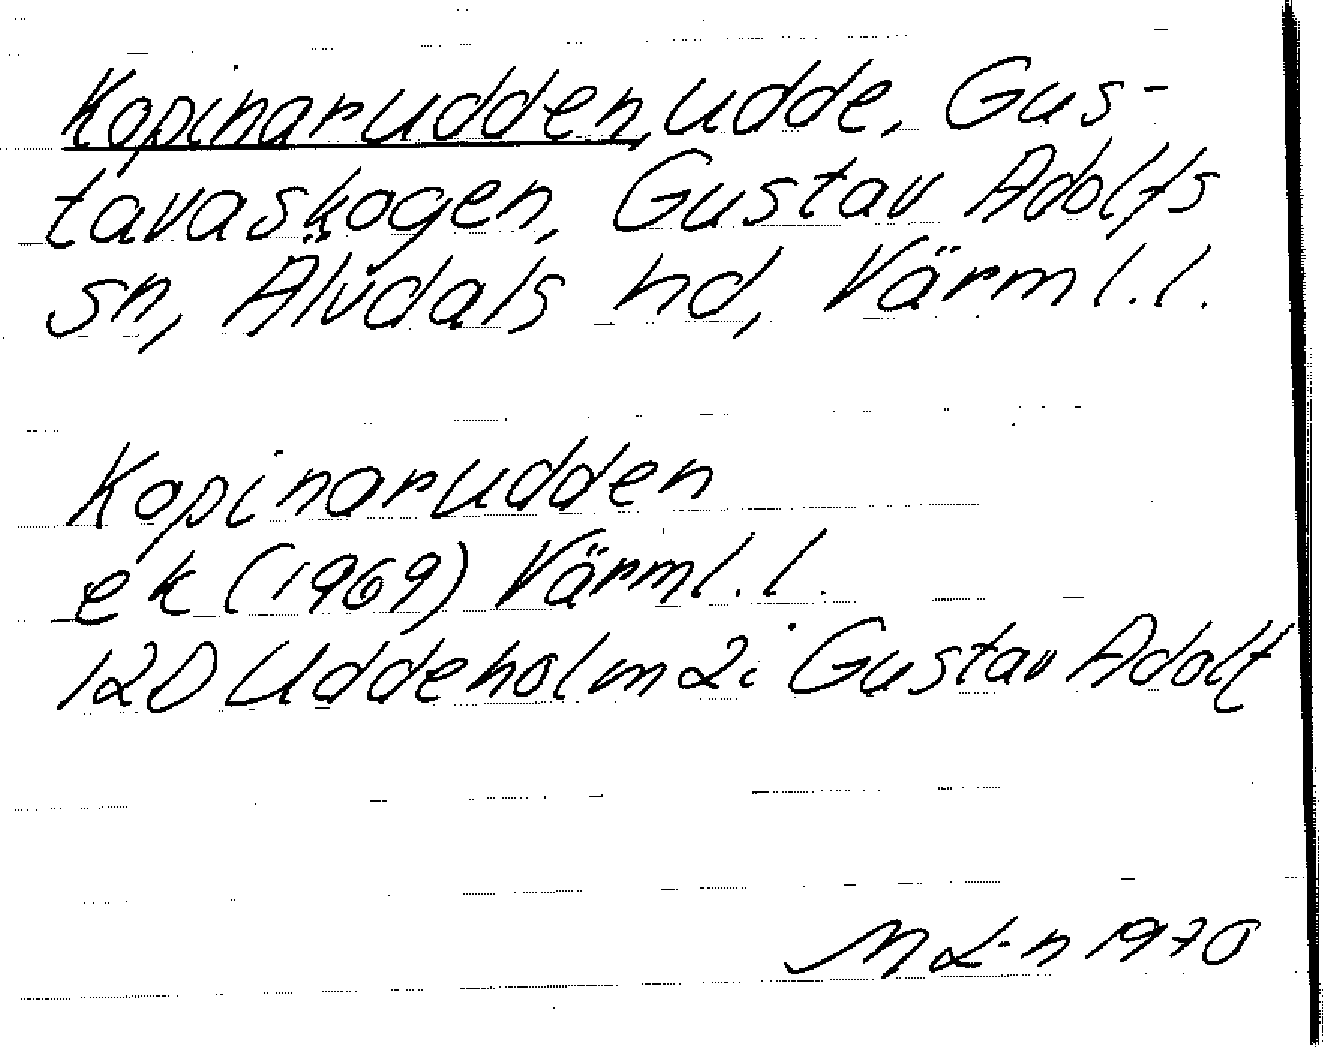 Kopinarudden, udde, Gus-
tavaskogen, Gustav Adolfs
sn, Älvdals hd, Värml.l.
Kopinarudden
ek (1969) Värml.l.
12D Uddeholm 2i Gustav Adolf
M L-n 1970